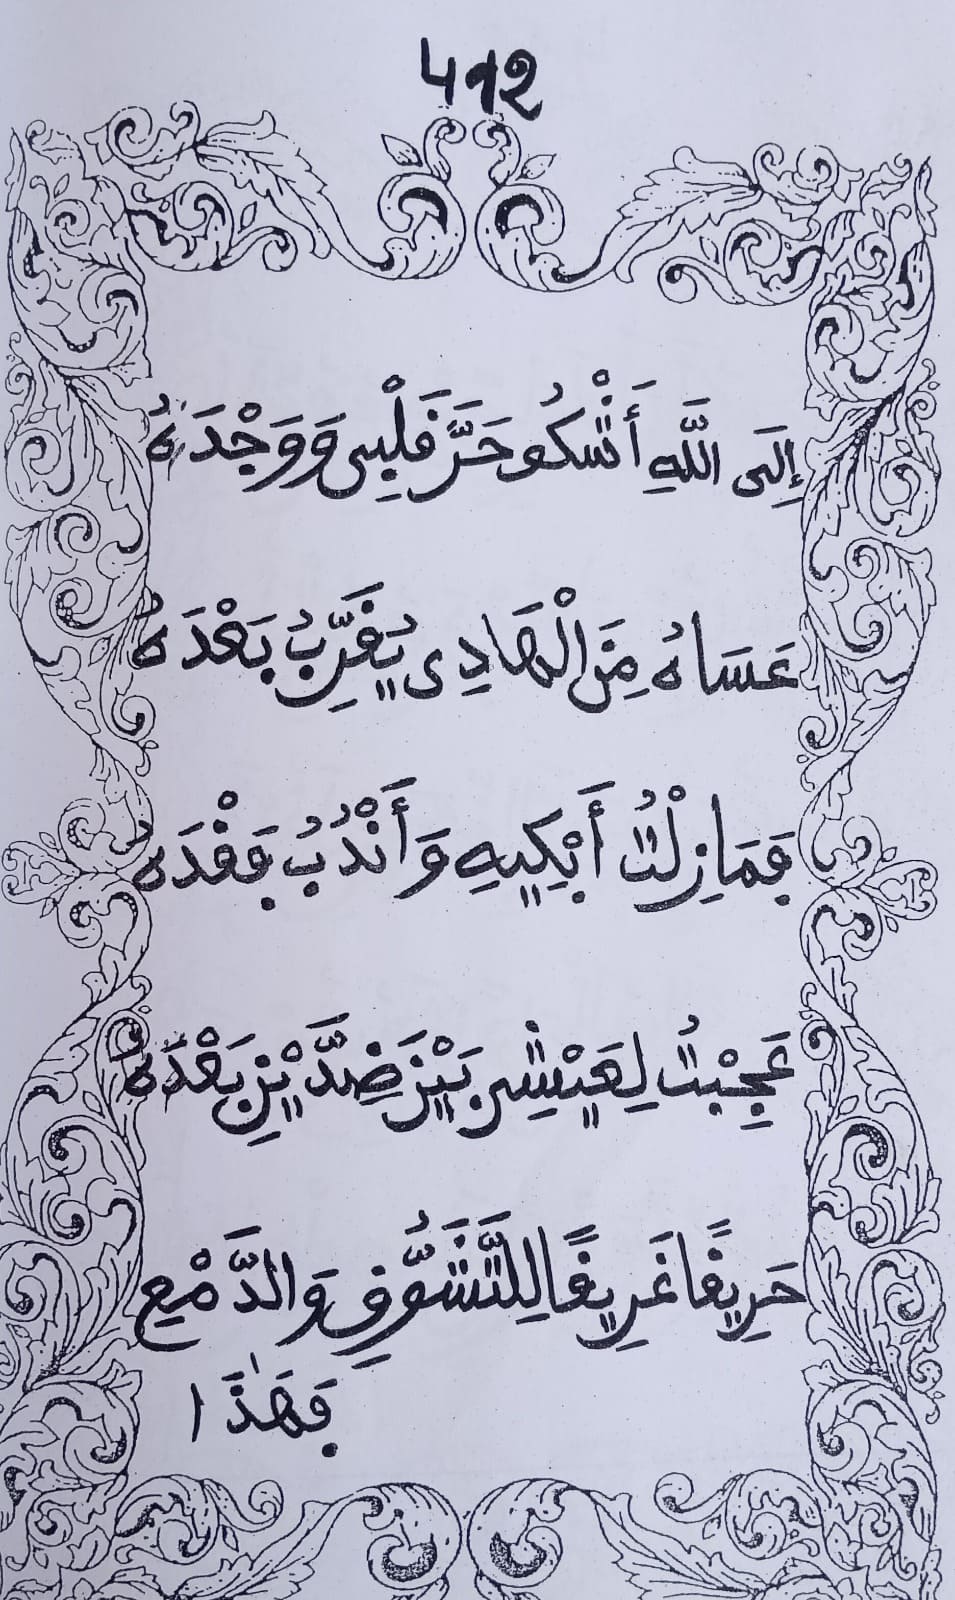 إِلَى اللَّهِ أَشْكُو حَرَّ قَلْبِى وَوَجْدَهُ
عَسَاهُ مِنَ الْهَادِى يُقَرِّبُ بَعْدَهُ
فَمَا زِلْتُ أَبْكِيهِ وَأَنْدُبُ فَقْدَهُ
عَجِبْتُ لِعَيْشِى بَيْنَ ضِدَّيْنِ بَعْدَهُ
حَرِيقًا غَرِيقًا لِلتَّشَوُّقِ وَالدَّمْعِ
فَهَٰذَا